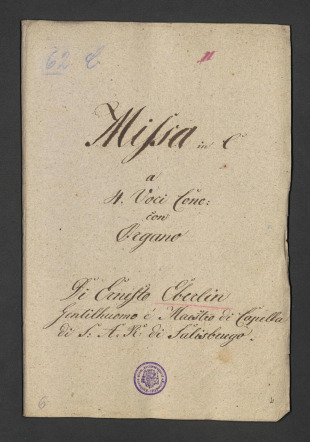 62 C
Missa in C
a
4. Voci Conc:
con
Organo
Di Ernesto Eberlin
Gentilhuomo è Maestro di Capella
di S: A: R: di Salisburgo.
6